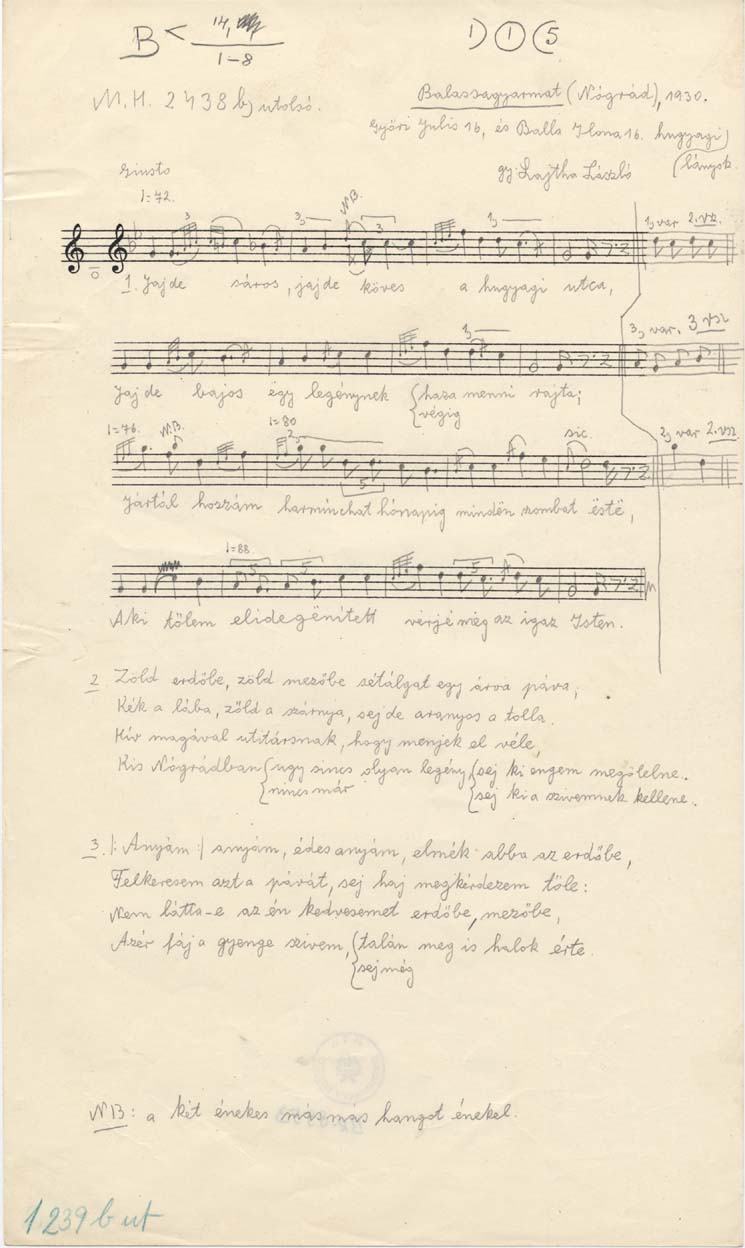 B < 14,
1–8
1) ① (5
M.H. 2438 b) utolsó.
Balassagyarmat (Nógrád), 1930.
Győri Julis 16, és Balla Ilona 16. hugyagi
lányok.
gy. Lajtha László
Giusto
♩=72.
3
3)
NB.
3
1)
1) var 2. vsz.
1. Jajde sáros, jajde köves a hugyagi utca,
1)
3) var. 3 vsz
Jaj de bajos égy legénynek {haza menni rajta;
{végig
♩=76.
NB.
♩=80
2)
5
sic.
2) var 2. vsz.
Jártál hozzám harminchat hónapig mindën szombat ëstë,
♩=88.
5
5
5
Aki tőlem elidegënitett vérjé még az igaz Isten.
2 Zöld erdőbe, zöld mezőbe sétálgat egy árva páva,
Kék a lába, zöld a szárnya, sej de aranyos a tolla.
Hiv magával utitársnak, hogy menjek el véle,
Kis Nógrádban {ugy sincs olyan legény, {sej ki engem megölelne.
{nincs már {sej ki a szivemnek kellene.
3. |: Anyám :| anyám, édes anyám, elmék abba az erdőbe,
Felkeresem azt a pávát, sej haj megkérdezem tőle:
Nem látta-e az én kedvesemet erdőbe, mezőbe,
Azér fáj a gyenge szivem, {talán meg is halok érte.
{sej még
NB: a két énekes más más hangot énekel.
1239 b ut